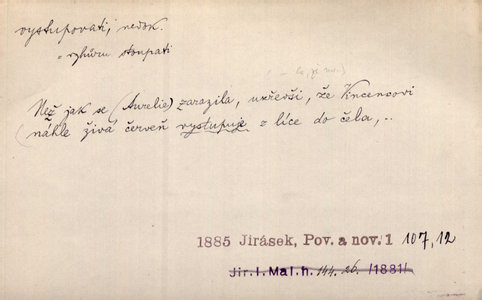 vystupovati, nedok.
= vzhůru stoupati
Než jak se (Aurelie) zarazila, uzřevši, že Vincencovi
náhle živá červeň vystupuje z líce do čela, ..
1885 Jirásek, Pov. a nov. 1 107, 12
Jir. I. Mal. h. 144. 26. /1881/